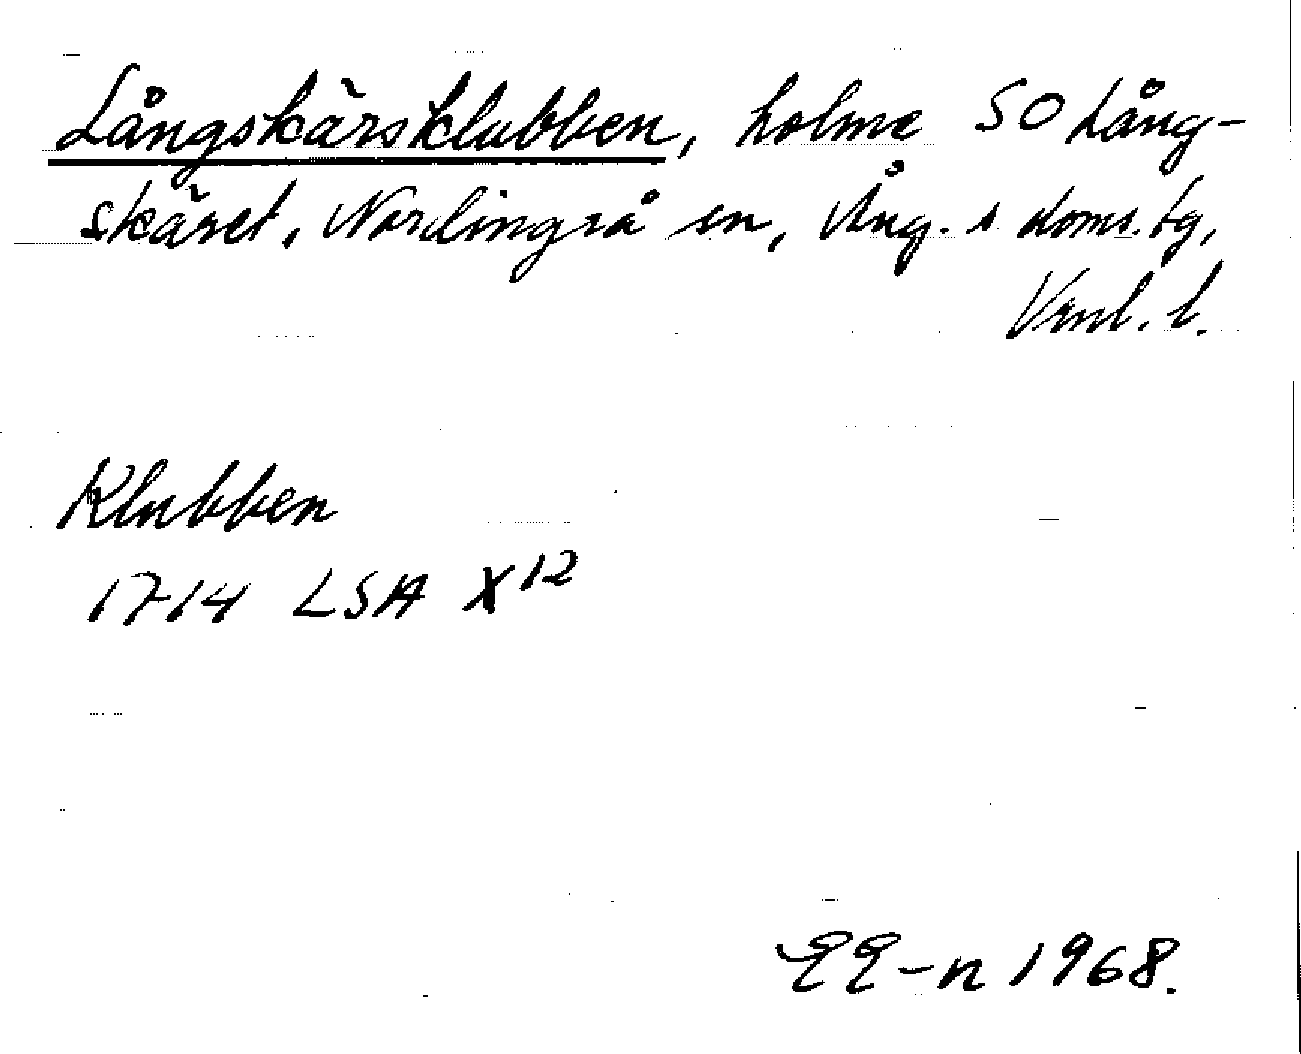 Långskärsklubben, holme SO Lång-
skäret, Nordingrå sn, Ång. s doms. tg,
Vnl. l.
Klubben
1714 LSA X 12
EE-n 1968.